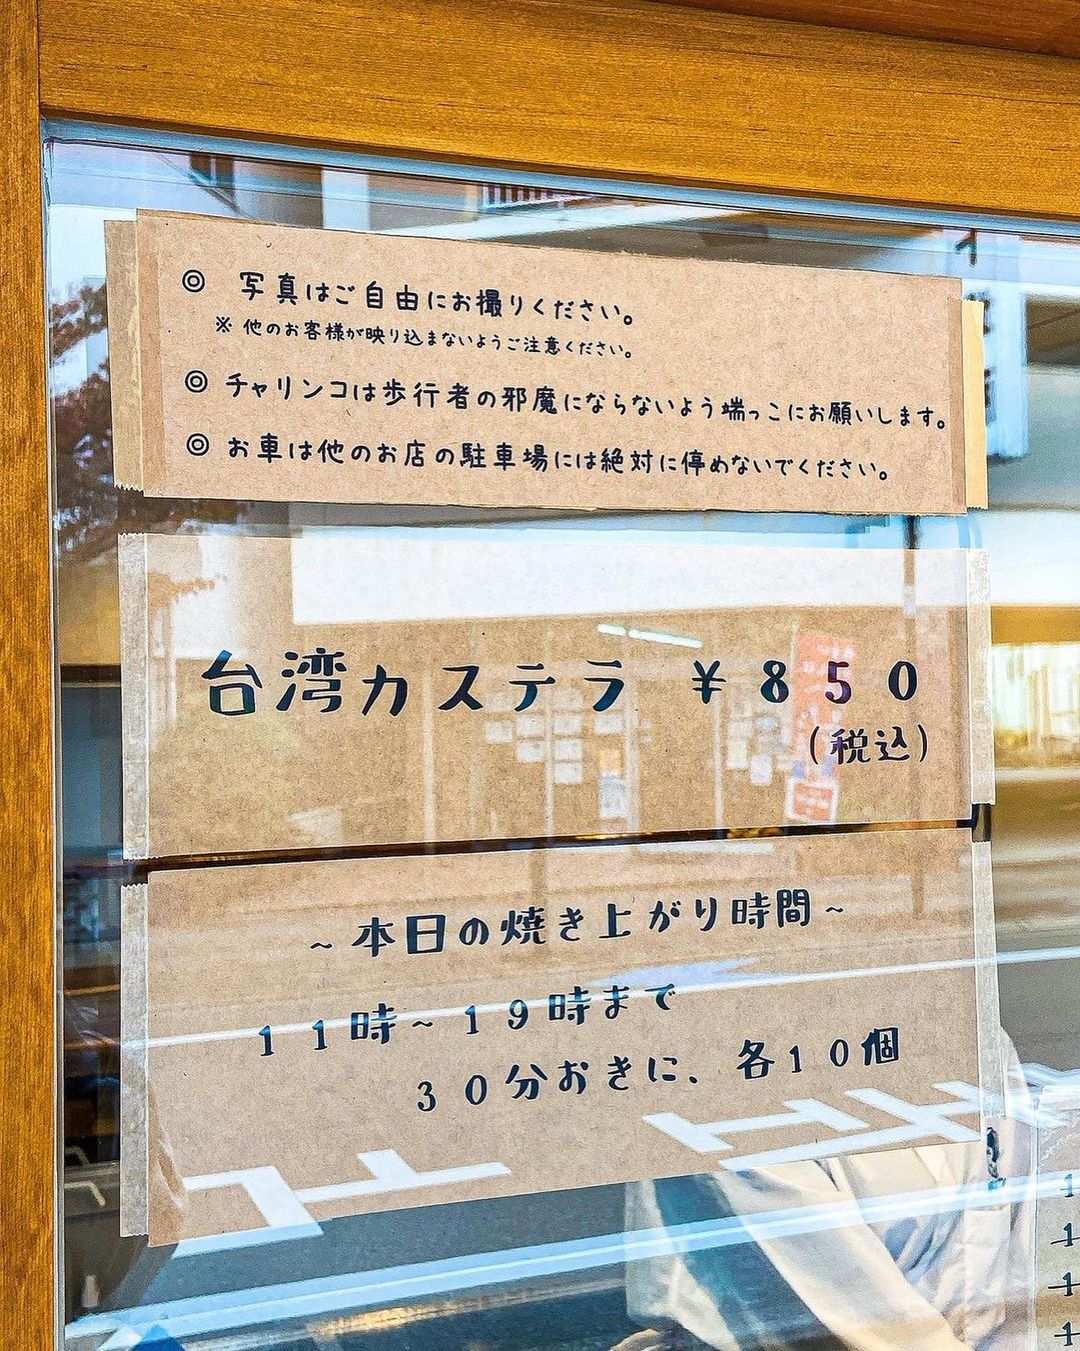 ◎ 写真はご自由にお撮りください。
※ 他のお客様が映り込まないようご注意ください。
◎ チャリンコは歩行者の邪魔にならないよう端っこにお願いします。
◎ お車は他のお店の駐車場には絶対に停めないでください。
台湾カステラ ¥850
(税込)
~本日の焼き上がり時間~
11時~19時まで
30分おきに、各10個